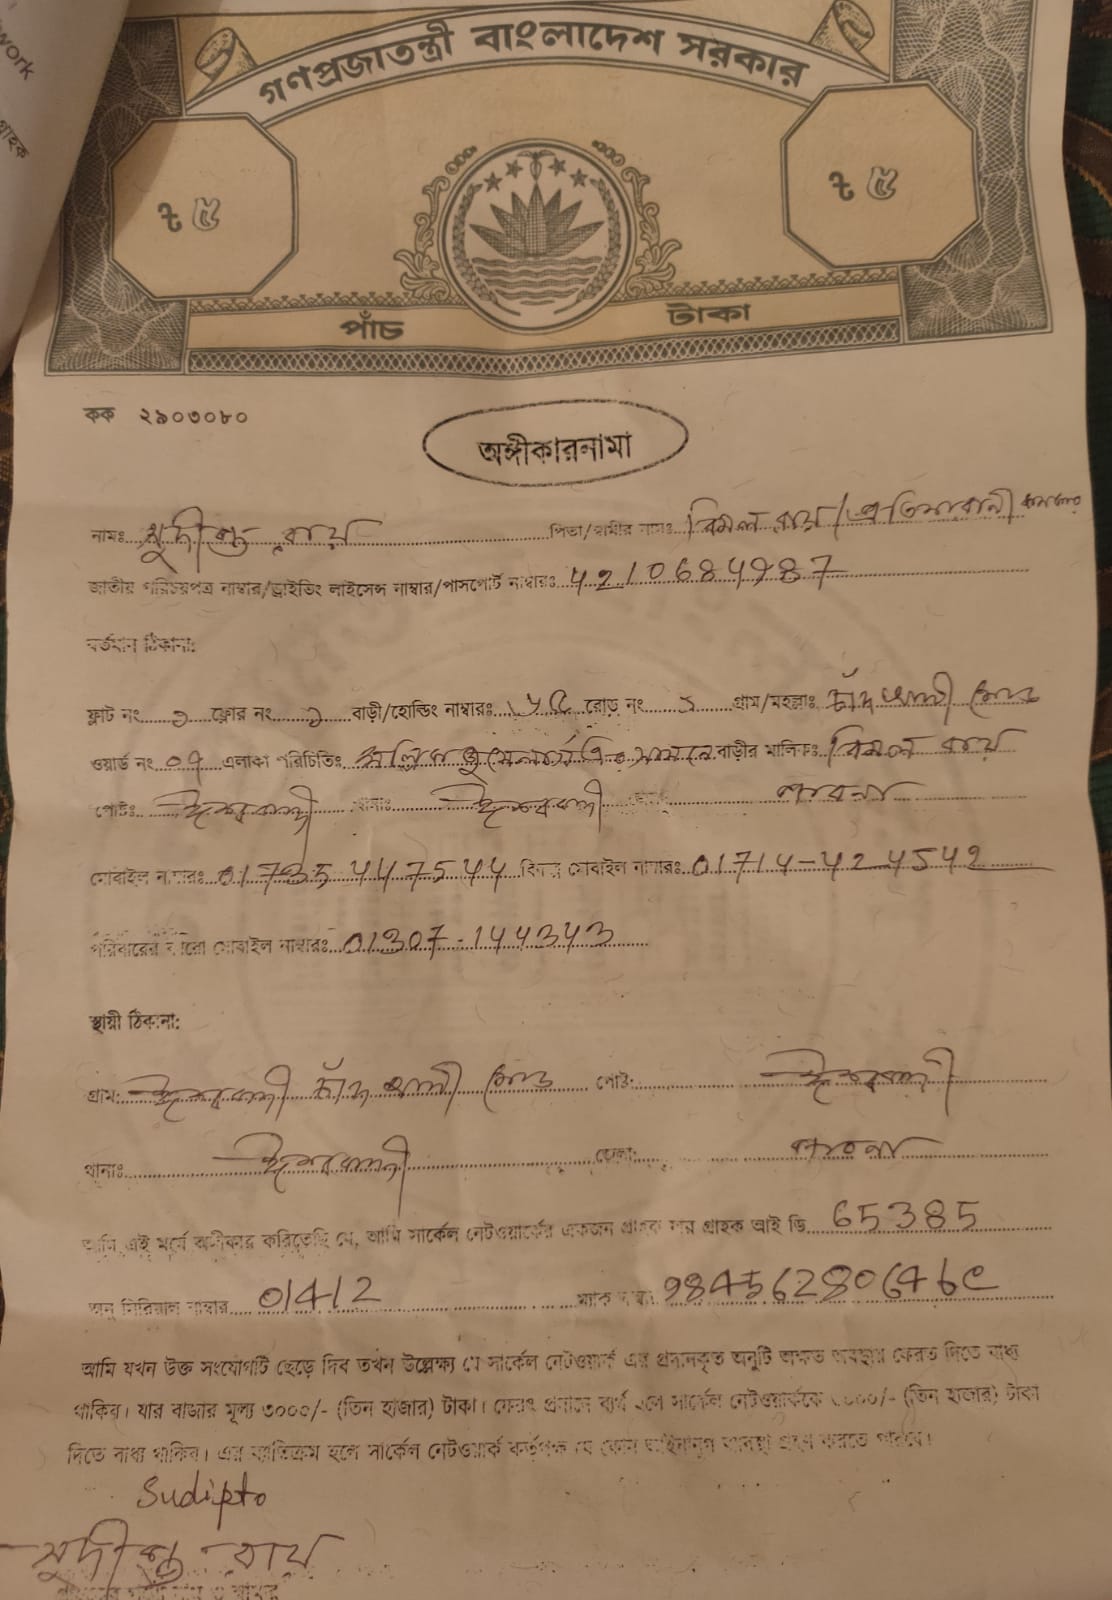 work
গ্রাহক
গণপ্রজাতন্ত্রী বাংলাদেশ সরকার
৳ ৫ ৳ ৫
পাঁচ টাকা
কক ২৯০৩০৮০
অঙ্গীকারনামা
নামঃ সুদীপ্ত রায় পিতা/স্বামীর নামঃ বিমল রায়/প্রতিমা রানী
জাতীয় পরিচয়পত্র নাম্বার/ড্রাইভিং লাইসেন্স নাম্বার/পাসপোর্ট নাম্বারঃ 4210684987
বর্তমান ঠিকানা:
ফ্লাট নং ১ ফ্লোর নং ১ বাড়ী/হোল্ডিং নাম্বারঃ রোড নং গ্রাম/মহল্লাঃ চাঁদ আলী মোড়
ওয়ার্ড নং 07 এলাকা পরিচিতিঃ সামনে বাড়ীর মালিকঃ বিমল রায়
পোষ্টঃ ঈশ্বরদী থানাঃ ঈশ্বরদী জেলাঃ পাবনা
মোবাইল নাম্বারঃ 01735447544 বিকল্প মোবাইল নাম্বারঃ 01714-424542
পরিবারের কারো মোবাইল নাম্বারঃ 01307-144343
স্থায়ী ঠিকানা:
গ্রাম: ঈশ্বরদী চাঁদ আলী মোড় পোষ্ট: ঈশ্বরদী
থানাঃ ঈশ্বরদী জেলা: পাবনা
আমি এই মর্মে অঙ্গীকার করিতেছি যে, আমি সার্কেল নেটওয়ার্কের একজন গ্রাহক যার গ্রাহক আই ডি 65385
অনু সিরিয়াল নাম্বার 01412 ম্যাক
আমি যখন উক্ত সংযোগটি ছেড়ে দিব তখন উল্লেক্ষ্য যে সার্কেল নেটওয়ার্ক এর প্রদানকৃত অনুটি অক্ষত অবস্থায় ফেরত দিতে বাধ্য
থাকিব। যার বাজার মূল্য ৩০০০/- (তিন হাজার) টাকা। ফেরৎ প্রদানে ব্যর্থ হলে সার্কেল নেটওয়ার্ককে ৩০০০/- (তিন হাজার) টাকা
দিতে বাধ্য থাকিব। এর ব্যতিক্রম হলে সার্কেল নেটওয়ার্ক কর্তৃপক্ষ যে কোন আইনানুগ ব্যবস্থা গ্রহণ করতে পারবে।
Sudipto
সুদীপ্ত রায়